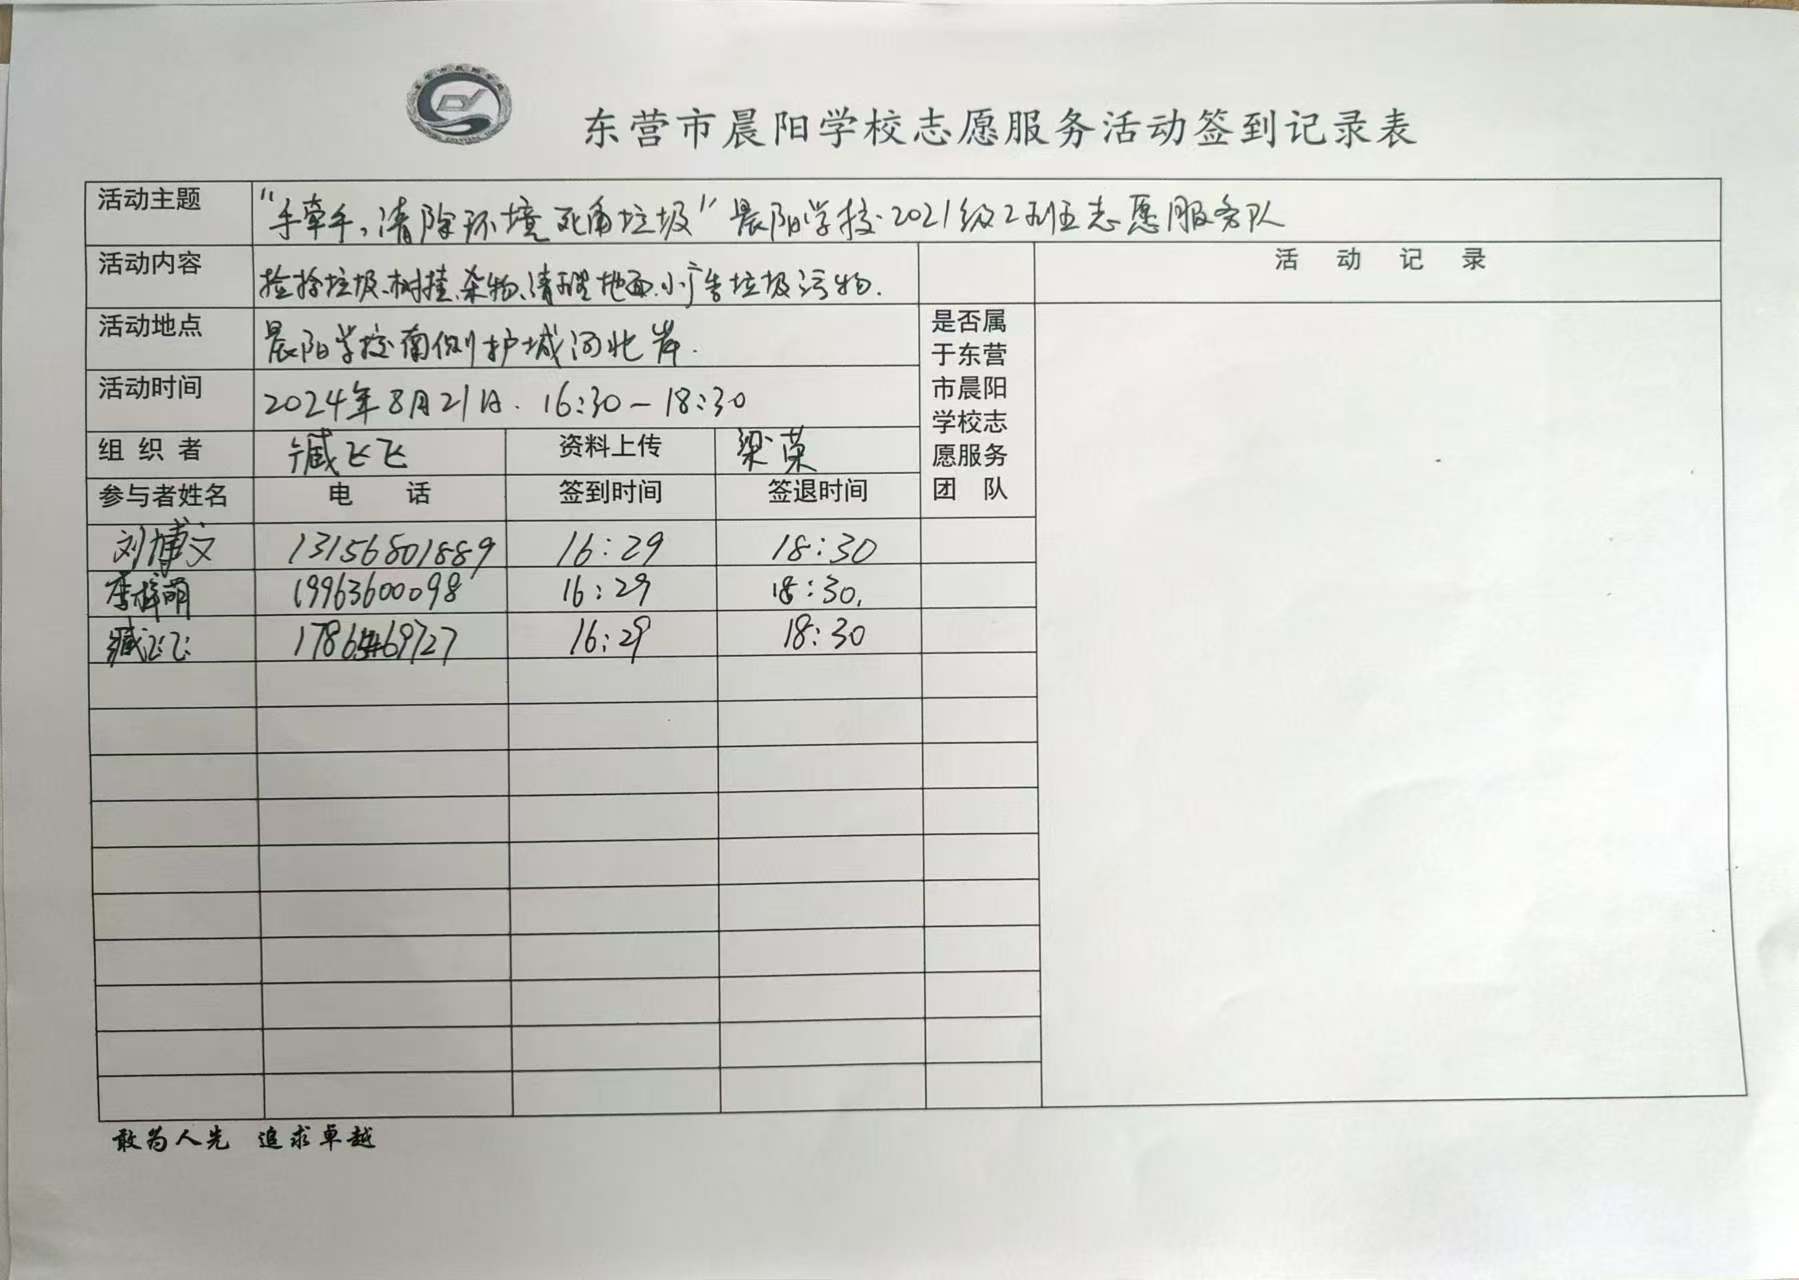 东营市晨阳学校志愿服务活动签到记录表
活动主题 "手牵手,清除环境死角垃圾"晨阳学校2021级2班志愿服务队
活动内容 捡拾垃圾、树挂、杂物、清理地面、小广告垃圾污物. 活 动 记 录
活动地点 晨阳学校南侧护城河北岸.
活动时间 2024年8月21日. 16:30-18:30
组 织 者 臧飞飞 资料上传 梁荣
是否属
于东营
市晨阳
学校志
愿服务
团 队
参与者姓名 电 话 签到时间 签退时间
刘博文 13156801889 16:29 18:30
李梓萌 19963600098 16:29 18:30.
臧飞飞 16:29 18:30
敢为人先 追求卓越